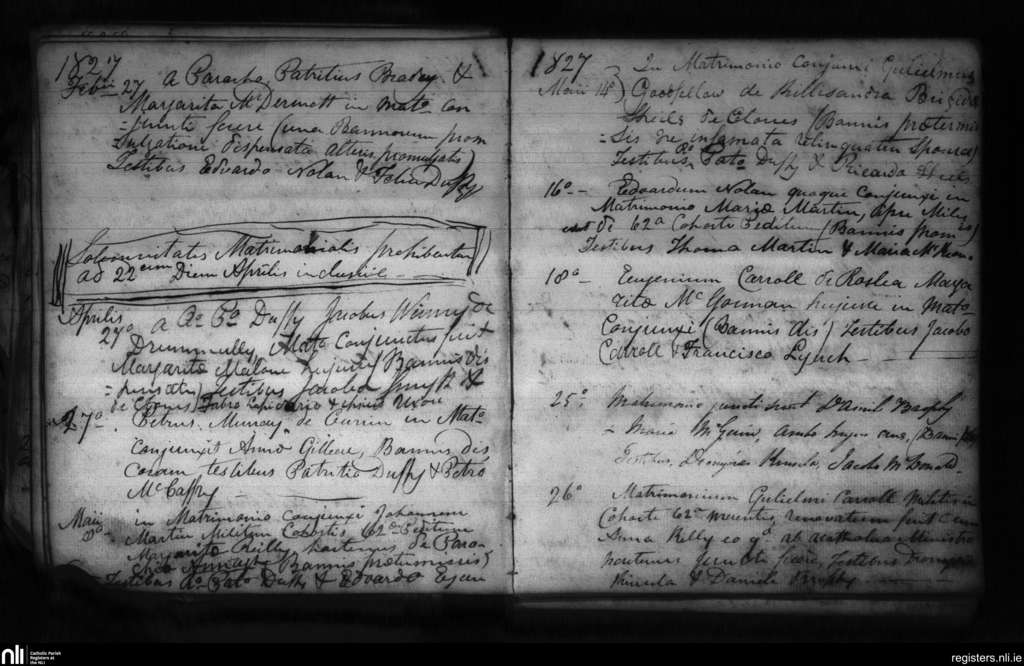 1827
Feb 27 a Parocho Patritius Bradey &
Margarita McDermott in mato con
juncti fuere (una Bannorum prom
ulgatione dispensata alteris promulgatis)
Testibus Edvardo Nolan & Felicia Duffy
Solemnitates Matrimonialis prohibentur
ad 22 um Diem Aprilis inclusive
Aprilis
27o a Ro Po Duffy Jacobus de
Drummully, Mato Conjunctus fuit
Margarita Malone Bannis dis
pensatis) Testibus Jacobo &
de Clones, Fabro & Uxore
27o Petrus Murray de in Mato
Conjunxit Anna Gillece, Bannis dis
coram testibus Patritio Duffy & Petro
McCaffry
Maii
in Matrimonio conjunxi Johannem
Martin Militem Cohortis 62a Peditum
Margarita Reilly de Paro
chia Bannis prætermissis)
Testibus Ro Pato Duffy & Edvardo Egan
1827
Maii 14o) In Matrimonio Conjunxi Gulielmum
Goodfellow de Killisandra Brigida
Sheils de Clones (Bannis prætermis
sis ne infamata relinquatur Sponsa)
Testibus Ro Pato Duffy & Ricardo Sheils
16o Edvardum Nolan quoque Conjunxi in
Matrimonio Mariæ Martin, Miles
est de 62a Cohorte Peditum (Bannis promis)
Testibus Thoma Martin & Maria
18o Eugenium Carroll de Roslea Marga
ritæ McGorman hujusce in Mato
Conjunxi (Bannis dis) Testibus Jacobo
Carroll & Francisco Lynch
25o Matrimonio juncti sunt Daniel Brophy
Maria McQuin, ambo hujus
Testibus, Dionysio Kinsela, Jacobo McDonald
26o Matrimonium Gulielmi Carroll Militis in
Cohorte 62a renovatum fuit cum
Anna Kelly eo qd ab acatholico Ministro
juncti fuere, Testibus Dionysio
Kinsela & Daniele Brophy
nli
Catholic Parish
Registers at
the NLI
registers.nli.ie